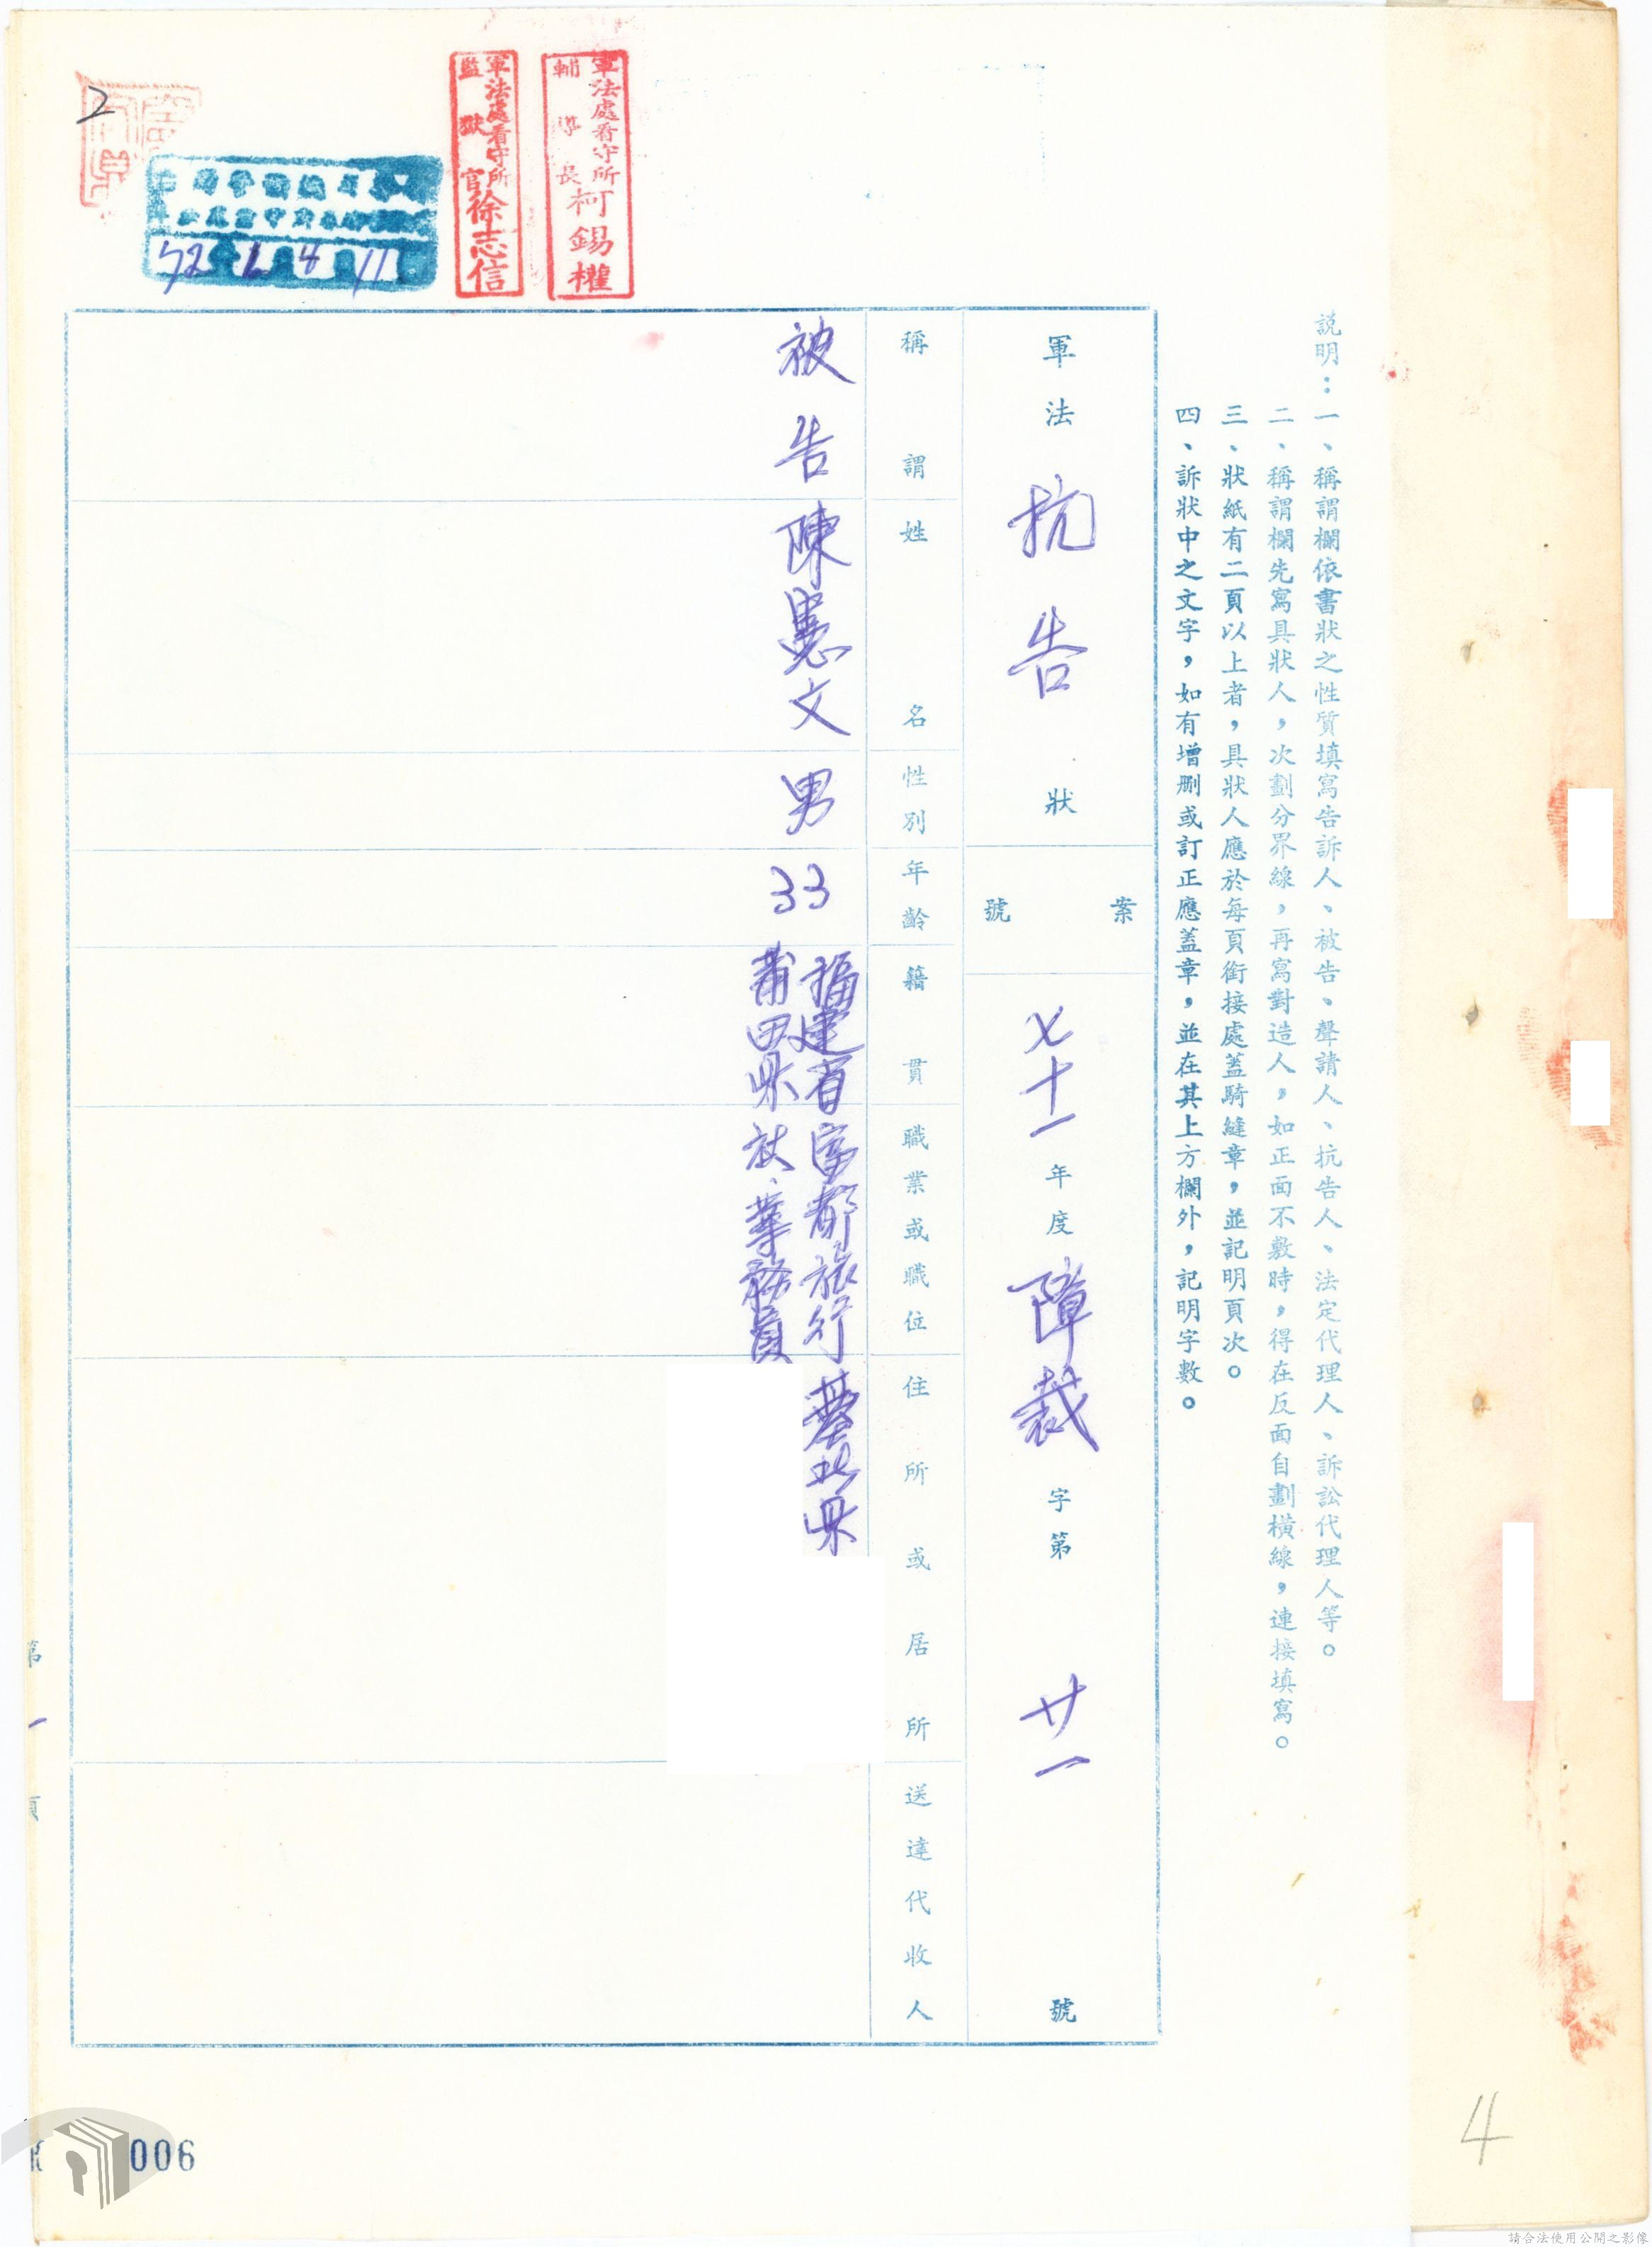 説明：一、稱謂欄依書狀之性質填寫告訴人、被告、聲請人、抗告人、法定代理人、訴訟代理人等。
二、稱謂欄先寫具狀人，次劃分界線，再寫對造人，如正面不敷時，得在反面自劃橫線，連接填寫。
三、狀紙有二頁以上者，具狀人應於每頁銜接處蓋騎縫章，並記明頁次。
四、訴狀中之文字，如有增刪或訂正應蓋章，並在其上方欄外，記明字數。
軍法抗告狀
案號
七十一年度障裁字第廿一號
稱謂
姓名
性別
年齡
籍貫
職業或職位
住所或居所
送達代收人
被告
陳憲文
男
33
福建省
莆田県
富都旅行
社、業務員
臺北県
軍法處看守所
輔導長柯錫權
軍法處看守所
監獄官徐志信
72 1 4 11
2
第一頁
006
4
請合法使用公開之影像